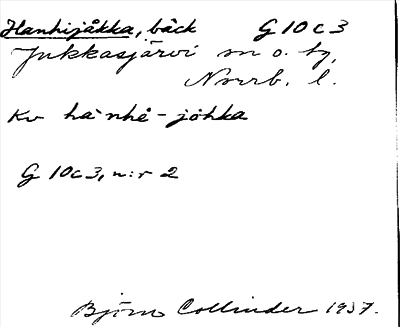 Hanhijåkka, bäck G 10 c 3
Jukkasjärvi sn o. tg,
Norrb. l.
Kv ha`nhɛ̄ - jȯhka
G 10 c 3, n:r 2
Björn Collinder 1937.